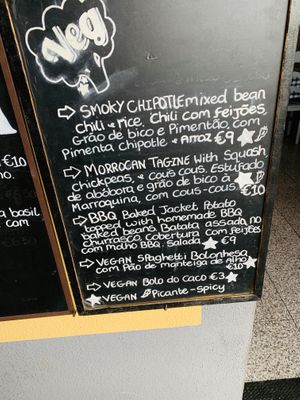 Veg
SMOKY CHIPOTLE mixed bean
chili + rice. Chili com feijões
Grão de bico e Pimentão com
Pimenta chipotle + Arroz €9
MORROCAN TAGINE with Squash
chickpeas, + cous cous. Estufado
de abóbora e grão de bico à
Marroquina, com cous-cous. €10
BBQ Baked Jacket Potato
topped with homemade BBQ
baked beans Batata assada no
churrasco, cobertura com feijões
com molho BBQ. salada €9
VEGAN Spaghetti Bolonhesa
com Pão de manteiga de alho
€10
VEGAN Bolo do Caco €3
VEGAN Picante-spicy
€10
basil
com